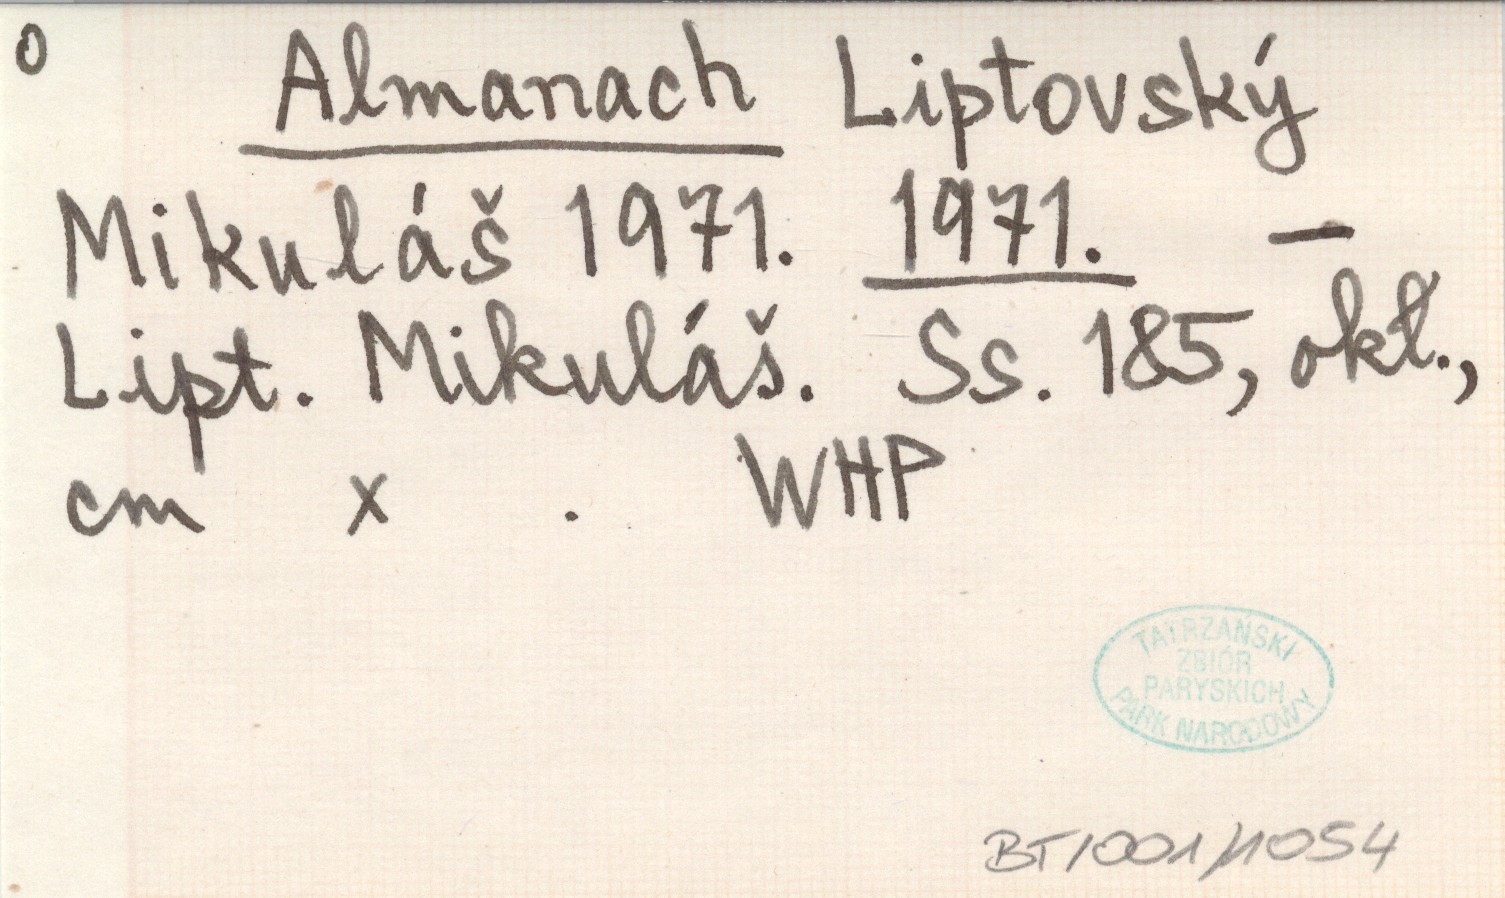 0 Almanach Liptovský
Mikuláš 1971. 1971. —
Lipt. Mikuláš. Ss. 185, okł.,
cm x . WHP
TATRZAŃSKI
ZBIÓR
PARYSKICH
PARK NARODOWY
BT/001/1054